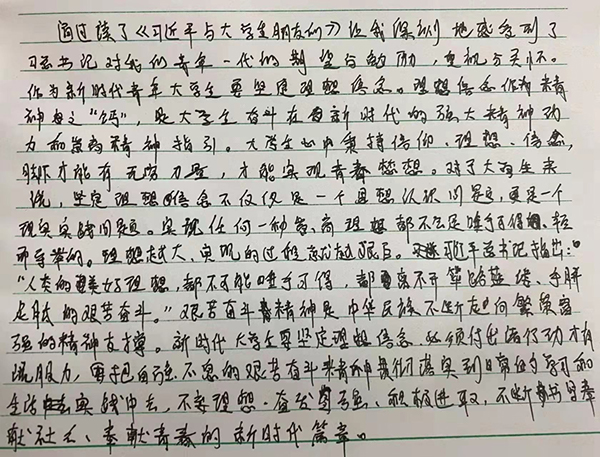 通过读了《习近平与大学生朋友们》让我深刻地感受到了
习总书记对我们青年一代的期望与勉励,重视与关怀。
作为新时代青年大学生要坚定理想信念。理想信念作为精
神之"钙",是大学生奋斗在新时代的强大精神动
力和崇高精神指引。大学生心中要持信仰、理想、信念,
脚下才能有无穷力量,才能实现青春梦想。对于大学生来
说,坚定理想信念不仅仅是一个思想认识问题,更是一个
现实实践问题。实现任何一种崇高理想都不会是唾手可得、轻
而易举的。理想越大、实现的过程就越艰巨。习近平总书记指出:
"人类的美好理想,都不可能唾手可得,都离不开筚路蓝缕、手胼
足胝的艰苦奋斗。"艰苦奋斗精神是中华民族不断走向繁荣富
强的精神支撑。新时代大学生要坚定理想信念,必须付出践行动才有
说服力,要把自强不息的艰苦奋斗精神贯彻落实到日常的学习和
生活实践中去,不忘理想、奋发图强、积极进取,不断书写奉
献社会、奉献青春的新时代篇章。